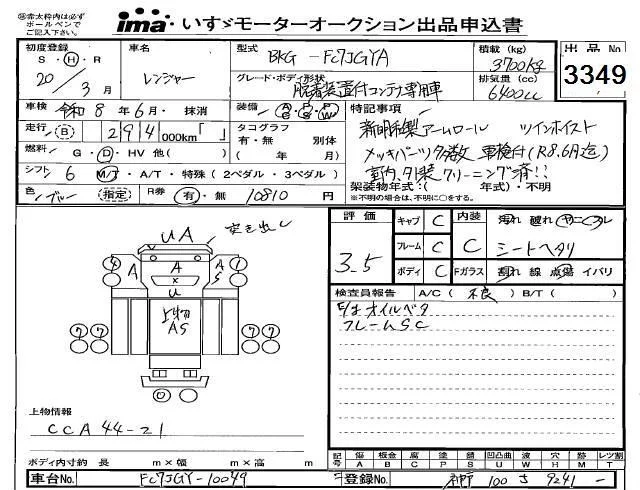 ㊟赤太枠内は必ず
ボールペンで
ご記入下さい。
ima いすゞモーターオークション出品申込書
初度登録
S・H・R
20 / 3 月
車名
レンジャー
型式
BKG - FC7JGYA
グレード・ボディ形状
脱着装置付コンテナ専用車
積載 (kg)
3700kg
排気量 (cc)
6400cc
出品No
3349
車検 令和 8 年 6 月・抹消
走行 (B) 294 000km「 」
燃料 G・D・HV 他( )
シフト 6 M/T・A/T・特殊(2ペダル・3ペダル)
色 ブルー (指定) R券 有・無 10810 円
装備 A/C P/S P/W
タコグラフ
有・無 別体
( 年 月)
特記事項
新明和製アームロール ツインホイスト
メッキパーツ多数 車検付(R8.6月迄)
室内、外装クリーニング済!!
架装物年式:( 年式)・不明
※不明の場合は、不明に○をする。
突き出し
UA
A
A
A
S
1
×
U
上物
AS
7 7
7 7
0 0
評価
3.5
キャブ C
フレーム C
ボディ C
内装 C
Fガラス
汚れ 破れ ヤニ コゲ スレ
シートヘタリ
割れ 線 点傷 イバリ
検査員報告 A/C ( 不良 ) B/T ( )
E/gオイルベタ
フレームSC
上物情報
CCA 44-21
ボディ内寸約 長 m×幅 m×高 m
記号 傷 板金 腐 塗 錆 凹凸曲 波 穴 欠 レツ割
A B C P S U W H M T
車台No. FC7JGY-10049
登録No. 神戸 100 さ 9241 -